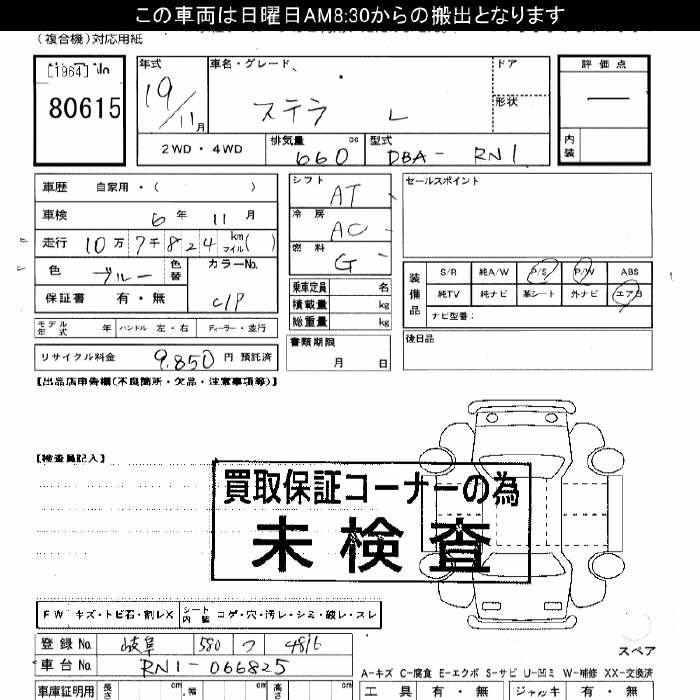 この車両は日曜日AM8:30からの搬出となります
(複合機)対応用紙
[1964]
80615
年式
19/11月
車名・グレード
ステラ L
ドア
形状
評価点
内装
2WD・4WD
排気量
660 cc
型式
DBA- RN1
車歴 自家用・( )
車検 6年 11月
走行 10万7千824 km マイル( )
色 ブルー 色替
カラーNo.
C/P
保証書 有・無
シフト AT
冷房 AC
燃料 G
乗車定員 名
積載量 kg
総重量 kg
セールスポイント
装備品
S/R 純A/W P/S P/W ABS
純TV 純ナビ 革シート 外ナビ エアB
ナビ型番:
モデル年式 年 ハンドル 左・右 ディーラー・並行
リサイクル料金 9,850 円 預託済
書類期限
月 日
後日品
【出品店申告欄(不良箇所・欠品・注意事項等)】
【検査員記入】
買取保証コーナーの為
未検査
FW キズ・トビ石・割レX
シート内装 コゲ・穴・汚レ・シミ・破レ・スレ
登録No. 岐阜 580 つ 4816
車台No. RN1-066825
スペア
A-キズ C-腐食 E-エクボ S-サビ U-凹ミ W-補修 XX-交換済
車庫証明用 長さ cm 幅 cm 高さ cm
工具 有・無 ジャッキ 有・無